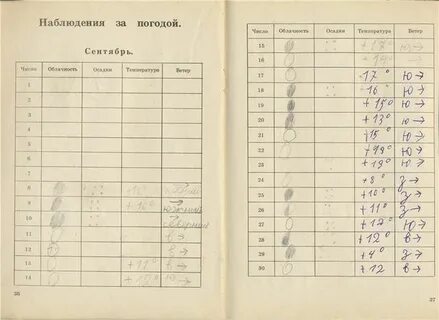 Наблюдения за погодой.
Сентябрь.
Число Облачность Осадки Температура Ветер
1
2
3
4
5
6
7
8
9 южный
10
11 в→
12 в→
13 +11° в→
14 +12° в→
36
Число Облачность Осадки Температура Ветер
15 +17° ю→
16
17 17° ю→
18 16° ю→
19 +15° ю→
20 +13° ю→
21 +15° ю→
22 ю→
23 +13° ю→
24 +8° з→
25 +10° з→
26 +11° з→
27 +12° ю→
28 +12° в→
29 +4° з→
30 +12 в→
37